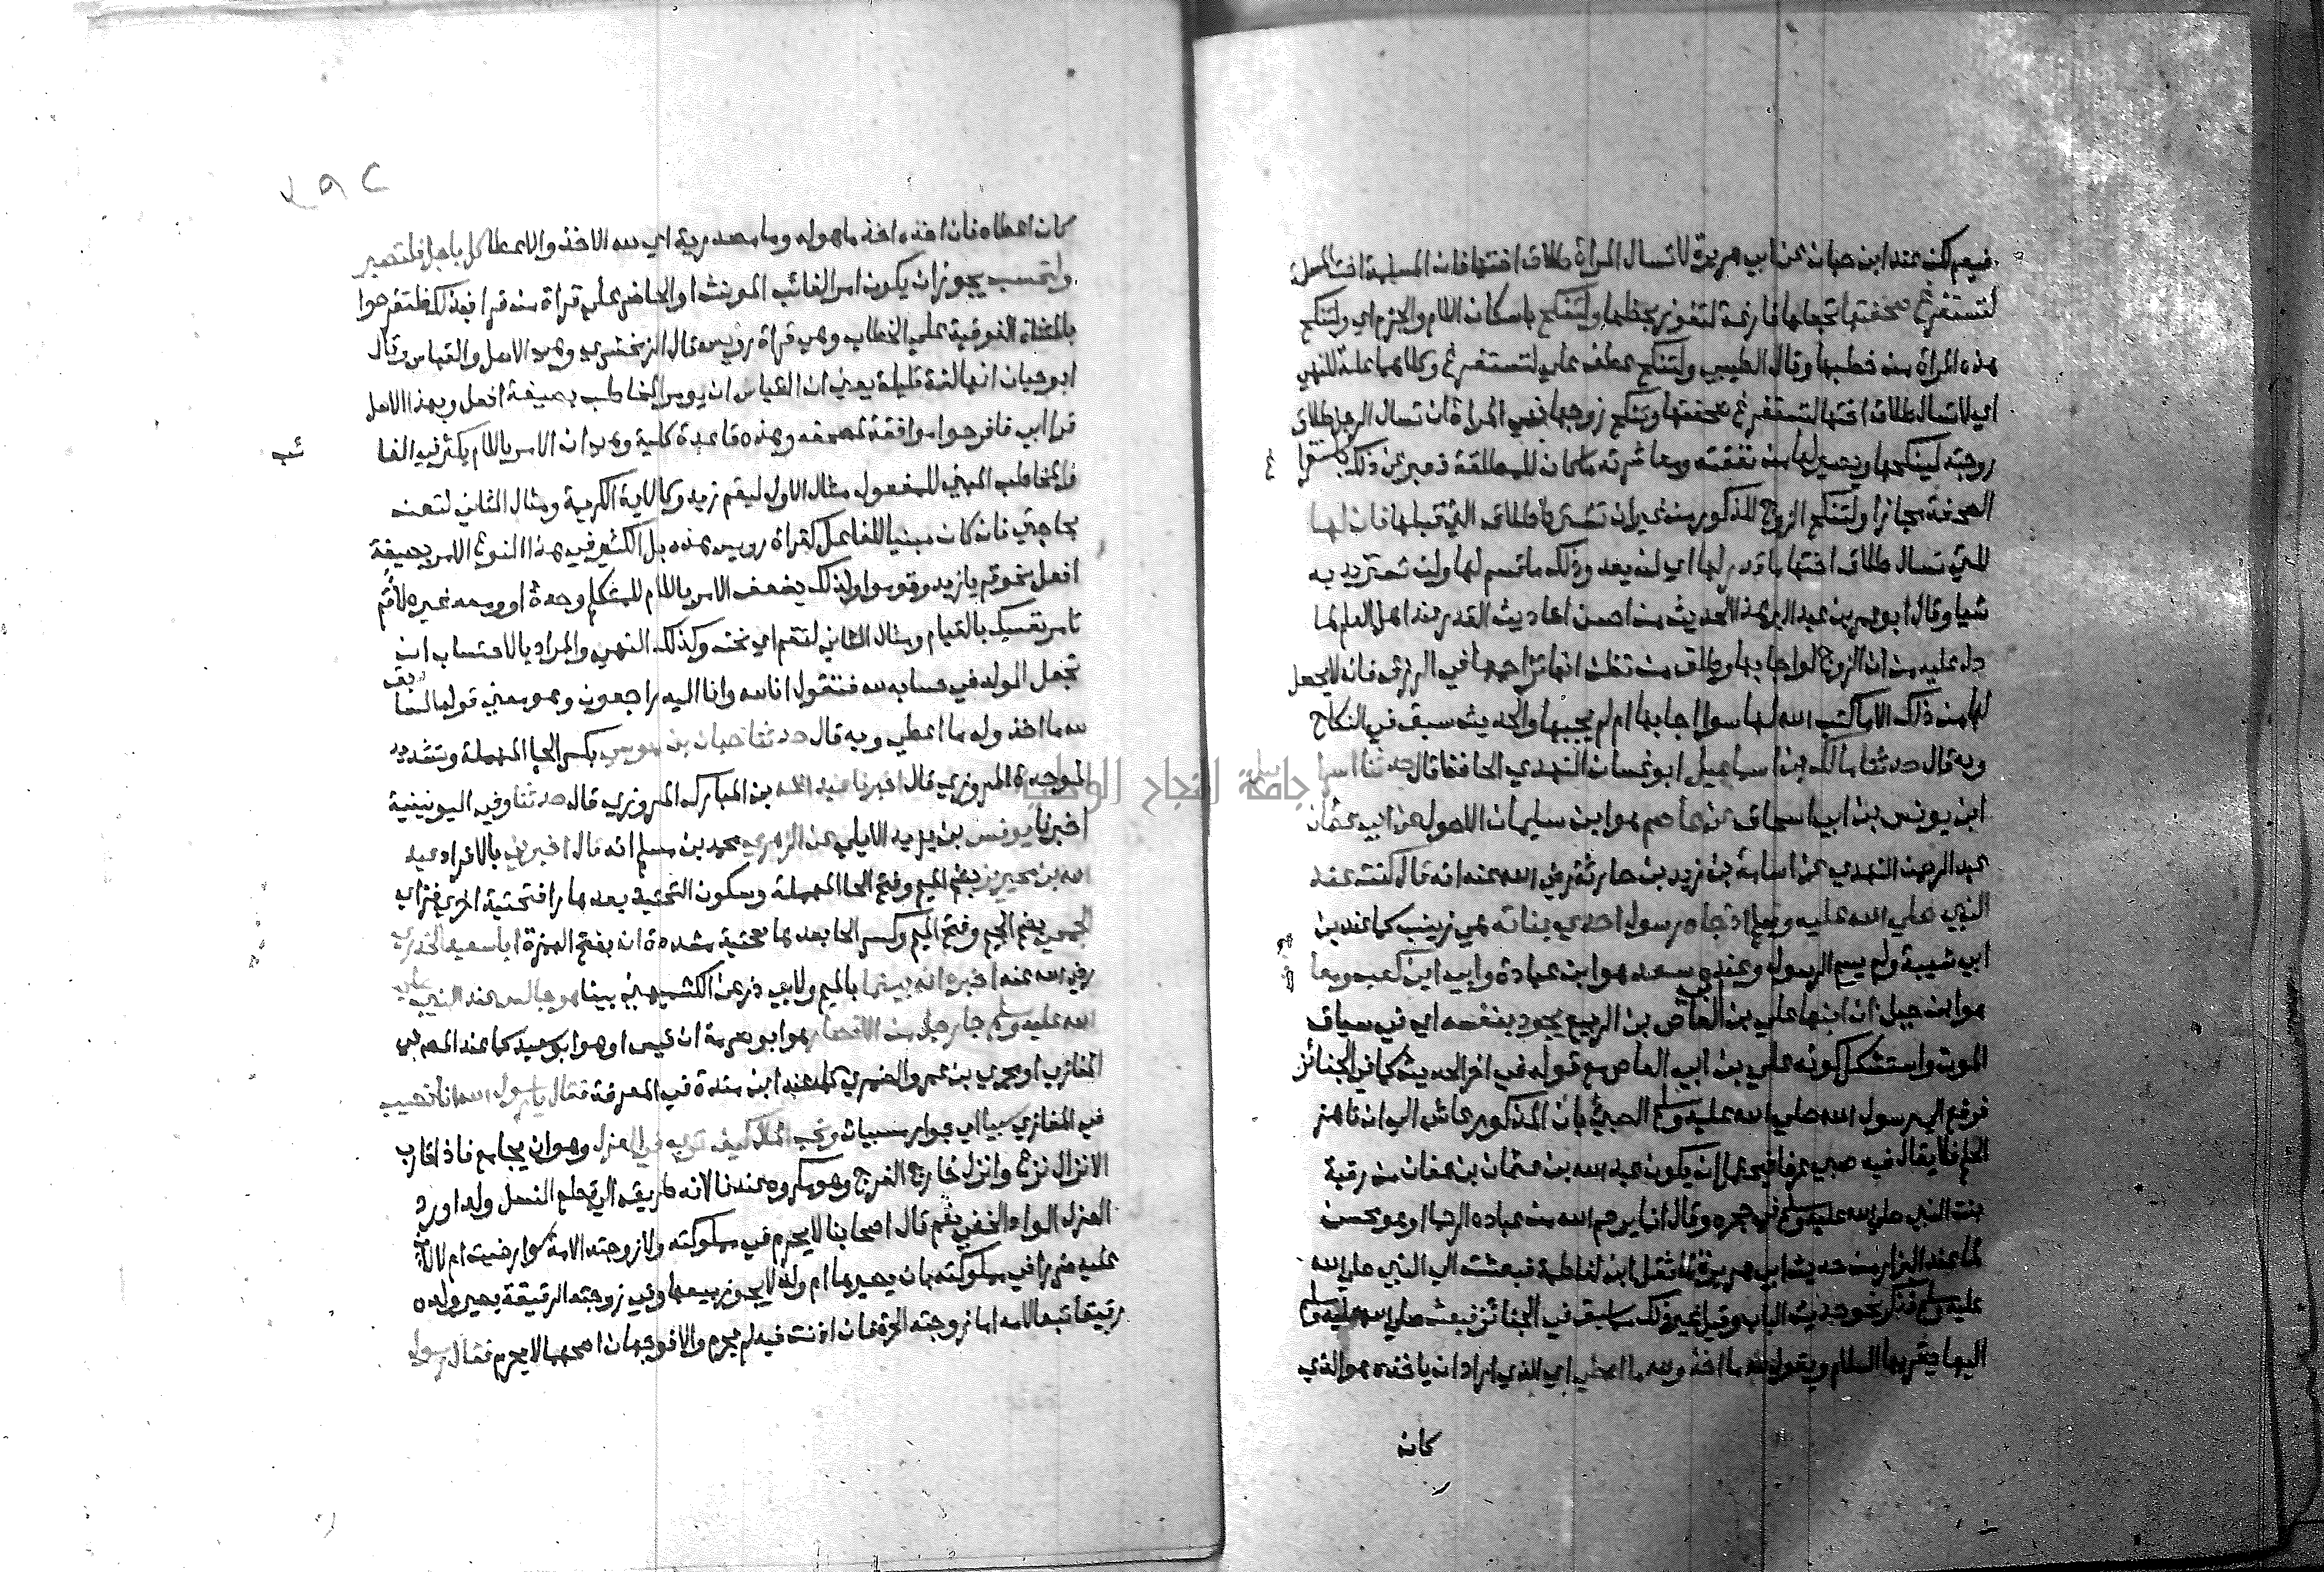 فيعم لكن عند ابن حبان عن ابي هريرة لا تسال المراة طلاق اختها فان المسلمة اخت المسلمة
لتستفرغ صحفتها تجعلها فارغة لتفوز بحظها ولتنكح باسكان اللام والجزم اي ولتنكح
هذه المراة من خطبها وقال الطيبي ولتنكح عطف علي لتستفرغ وكلاهما علة للنهي
اي لا تسال طلاق اختها لتستفرغ صحفتها وتنكح زوجها نهي المراة ان تسال الرجل طلاق
زوجته لينكحها ويصير لها من نفقته ومعاشرته ما كان للمطلقة فعبر عن ذلك باستفرا
غ
الصحفة مجازا ولتنكح الزوج المذكور من غير ان تشترط طلاق التي قبلها فان لها
للتي تسال طلاق اختها ما قدر لها اي لن يعدو ذلك ما قسم لها ولن تستزيد به
شيا وقال ابو عمر بن عبد البر هذا الحديث من احسن احاديث القدر عند اهل العلم لما
دل عليه من ان الزوج لو اجابها وطلق من تظن انها تزاحمها في الرزق فانه لا يحصل
لها من ذلك الا ما كتب الله لها سوا اجابها ام لم يجبها والحديث سبق في النكاح
وبه قال حدثنا مالك بن اسماعيل ابو غسان النهدي الحافظ قال حدثنا اسرا
ييل
ابن يونس بن ابي اسحاق عن عاصم هو ابن سليمان الاحول عن ابي عثمان
عبد الرحمن النهدي عن اسامة بن زيد بن حارثة رضي الله عنه انه قال كنت عند
النبي صلي الله عليه وسلم اذ جاه رسول احدي بناته هي زينب كما عند بن
ابي شيبة ولم يسم الرسول وعنده سعد هو ابن عبادة وابي ابن كعب ومعا
ذ
هو ابن جبل ان ابنها علي بن ابي العاص بن الربيع يجود بنفسه اي في سياق
الموت واستشكل كونه علي بن ابي العاص مع قوله في اخر الحديث كما في الجنائز
فرفع الي رسول الله صلي الله عليه وسلم الصبي بان المذكور عاش الي ان ناهز
الحلم فلا يقال فيه صبي عرفا فيحتمل ان يكون عبد الله بن عثمان بن عفان من رقية
بنت النبي صلي الله عليه وسلم في حجره وقال انما يرحم الله من عباده الرحما او هو محسن
لما عند البزار من حديث ابي هريرة لما ثقل ابن لفاطمة فبعثت الي النبي صلي الله
عليه وسلم فذكر نحو حديث الباب وقيل غير ذلك مما سبق في الجنائز فبعث صلي الله عليه وسلم
اليها يقريها السلام ويقول لله ما اخذ ولله ما اعطي اي الذي اراد ان ياخذه هو الذي
كان
كان اعطاه فان اخذه اخذ ما هو له وما مصدرية اي لله الاخذ والاعطا كل باجل فلتصبر
ولتحتسب يجوز ان يكون امر الغائب المونث او الحاضر علي قراة من قرا فبذلك فلتفرحوا
بالمثناة الفوقية علي الخطاب وهي قراة رويس قال الزمخشري وهو الاصل والقياس وقال
ابو حيان انها لغة قليلة يعني ان القياس ان يومر المخاطب بصيغة افعل وبهذا الاصل
قرا ابي فافرحوا موافقة لمصحفه وهذه قاعدة كلية وهو ان الامر باللام يكثر في الغا
ئب
والمخاطب المبني للمفعول مثال الاول ليقم زيد وكالاية الكريمة ومثال الثاني لتعن
بحاجتي فان كان مبنيا للفاعل كقراة رويس هذه بل الكثير في هذا النوع الامر بصيغة
افعل نحو قم يا زيد وقوموا ولذلك يضعف الامر باللام للمتكلم وحده او ومعه غيره لاقم
تامر نفسك بالقيام ومثال الثاني لنقم اي نحن وكذلك النهي والمراد بالاحتساب ان
تجعل الولد في حسابه لله فتقول انا لله وانا اليه راجعون وهو معني قوله السا
بق
لله ما اخذ وله ما اعطي وبه قال حدثنا حبان بن موسي بكسر الحا المهملة وتشديد
الموحدة المروزي قال اخبرنا عبد الله بن المبارك المروزي قال حدثنا وفي اليونينية
اخبرنا يونس بن يزيد الايلي عن الزهري محمد بن مسلم انه قال اخبرني بالافراد عبد
الله بن محيريز بضم الميم وفتح الحا المهملة وسكون التحتية بعدها را فتحتية اخري فزاي
الجمحي بضم الجيم وفتح الميم وكسر الحا بعدها تحتية مشددة ان بفتح الهمزة ابا سعيد الخدري
رضي الله عنه اخبره انه بينما بالميم ولابي ذر عن الكشميهني بينا هو جالس عند النبي صلي
الله عليه وسلم جا رجل من الانصار هو ابو صرمة ابن قيس او هو ابو سعيد كما عند المص في
المغازي او مجدي بن عمرو الضمري كما عند ابن مندة في المعرفة فقال يا رسول الله انا نصيب
في المغازي سبيا اي جوار مسبيات ونحب المال كيف تري في العزل وهو ان يجامع فاذا قارب
الانزال نزع وانزل خارج الفرج وهو مكروه عندنا لانه طريق الي قطع النسل ولذا ورد
العزل الواد الخفي نعم قال اصحابنا لا يحرم في مملوكته ولا زوجته الامة سوا رضيت ام لا لان
عليه ضررا في مملوكته بان يصيرها ام ولد لا يجوز بيعها وفي زوجته الرقيقة يصير ولده
رقيقا تبعا لامه اما زوجته الحرة فان اذنت فيه لم يحرم والا فوجهان اصحهما لا يحرم فقال رسول
جامعة النجاح الوطنية